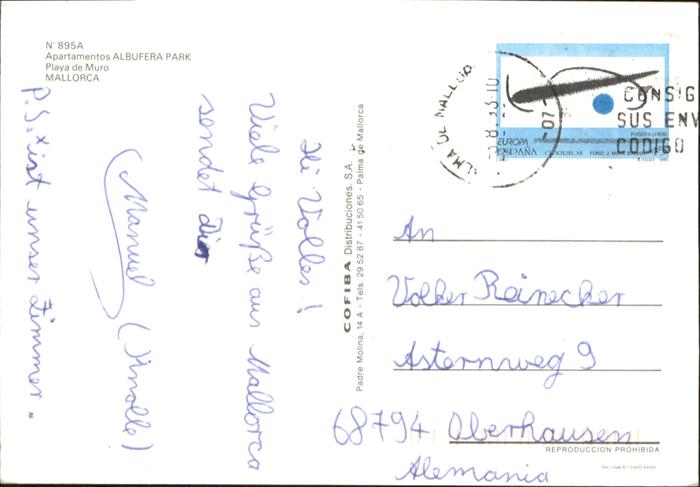 N° 895A
Apartamentos ALBUFERA PARK
Playa de Muro
MALLORCA
Hi Volles!
Viele Grüße aus Mallorca
sendet dir
Manuel (Knolle)
P.S. x ist unser Zimmer.
COFIBA Distribuciones, S.A.
Padre Molina, 14 A - Tels. 29 52 87 - 41 50 65 - Palma de Mallorca
PALMA DE MALLORCA
-07-
CONSIG
SUS ENV
CODIGO
EUROPA
ESPAÑA
An
Volker Reinecker
Asternweg 9
68794 Oberhausen
Alemania
REPRODUCCION PROHIBIDA